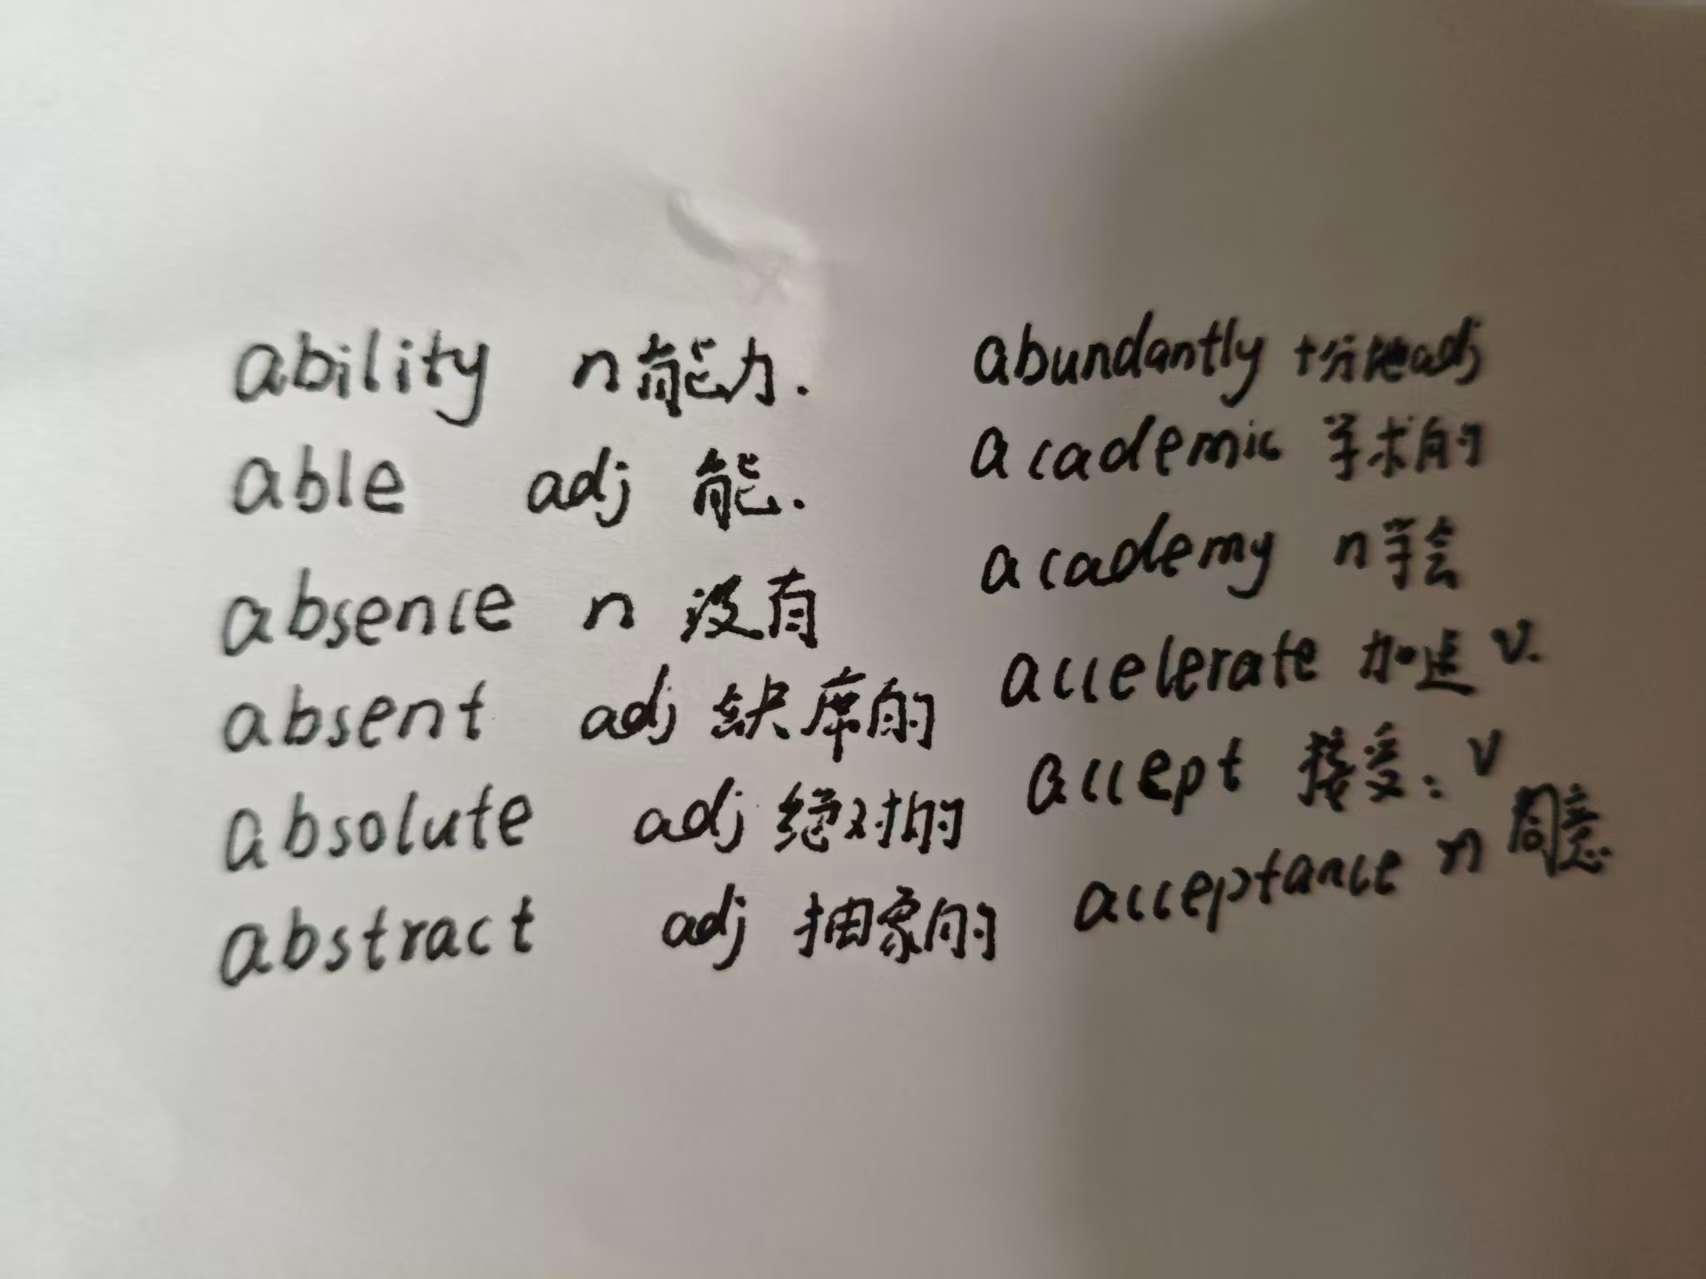 ability n 能力.
able adj 能.
absence n 没有
absent adj 缺席的
absolute adj 绝对的
abstract adj 抽象的
abundantly 十分地 adj
academic 学术的
academy n 学会
accelerate 加速 v.
accept 接受: v
acceptance n 同意